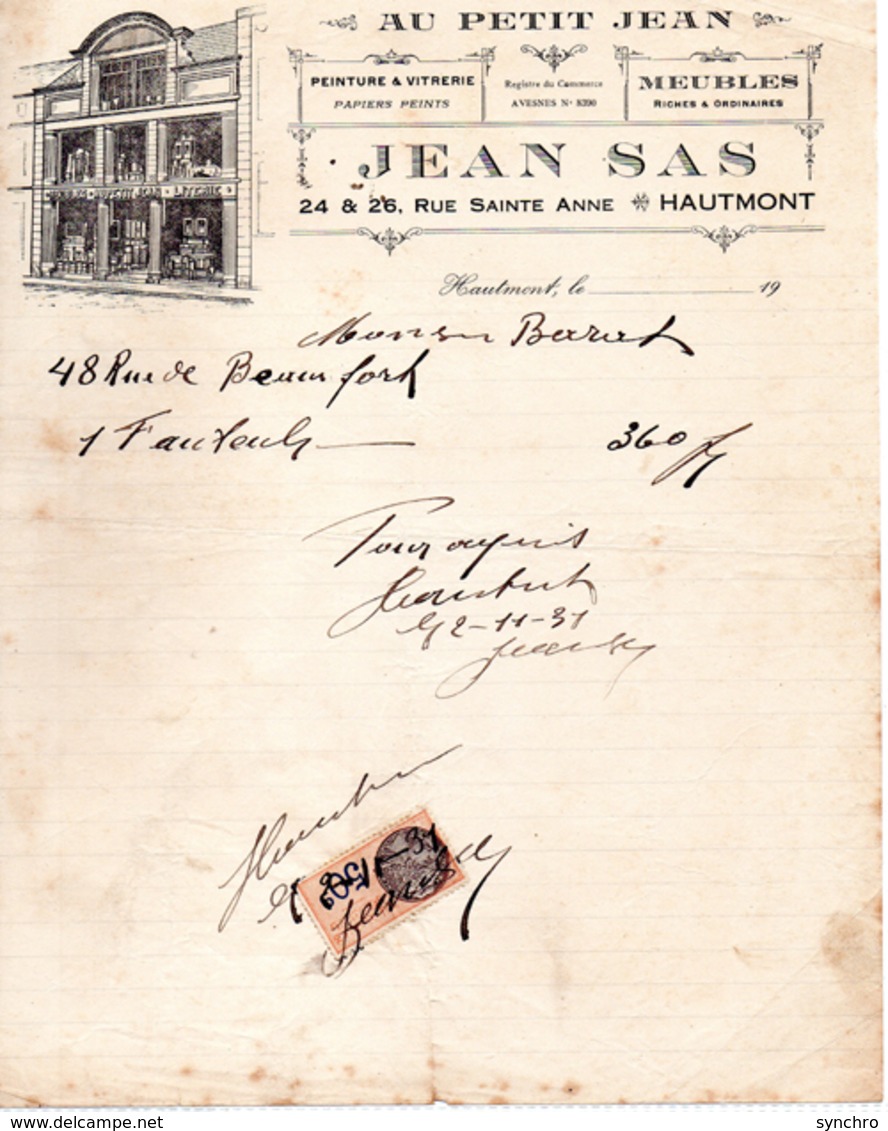 AU PETIT JEAN
PEINTURE & VITRERIE
PAPIERS PEINTS
Registre du Commerce
AVESNES N° 8390
MEUBLES
RICHES & ORDINAIRES
JEAN SAS
24 & 26, RUE SAINTE ANNE HAUTMONT
AU PETIT JEAN LITERIE
Hautmont, le 19
Monsieur Barat
48 Rue de Beaufort
1 Fauteuils 360 f
Pour acquis
Hautmont
le 2-11-31
Jean Sas
Hautmont
le 2-11-31
50c
Jean Sas
synchro